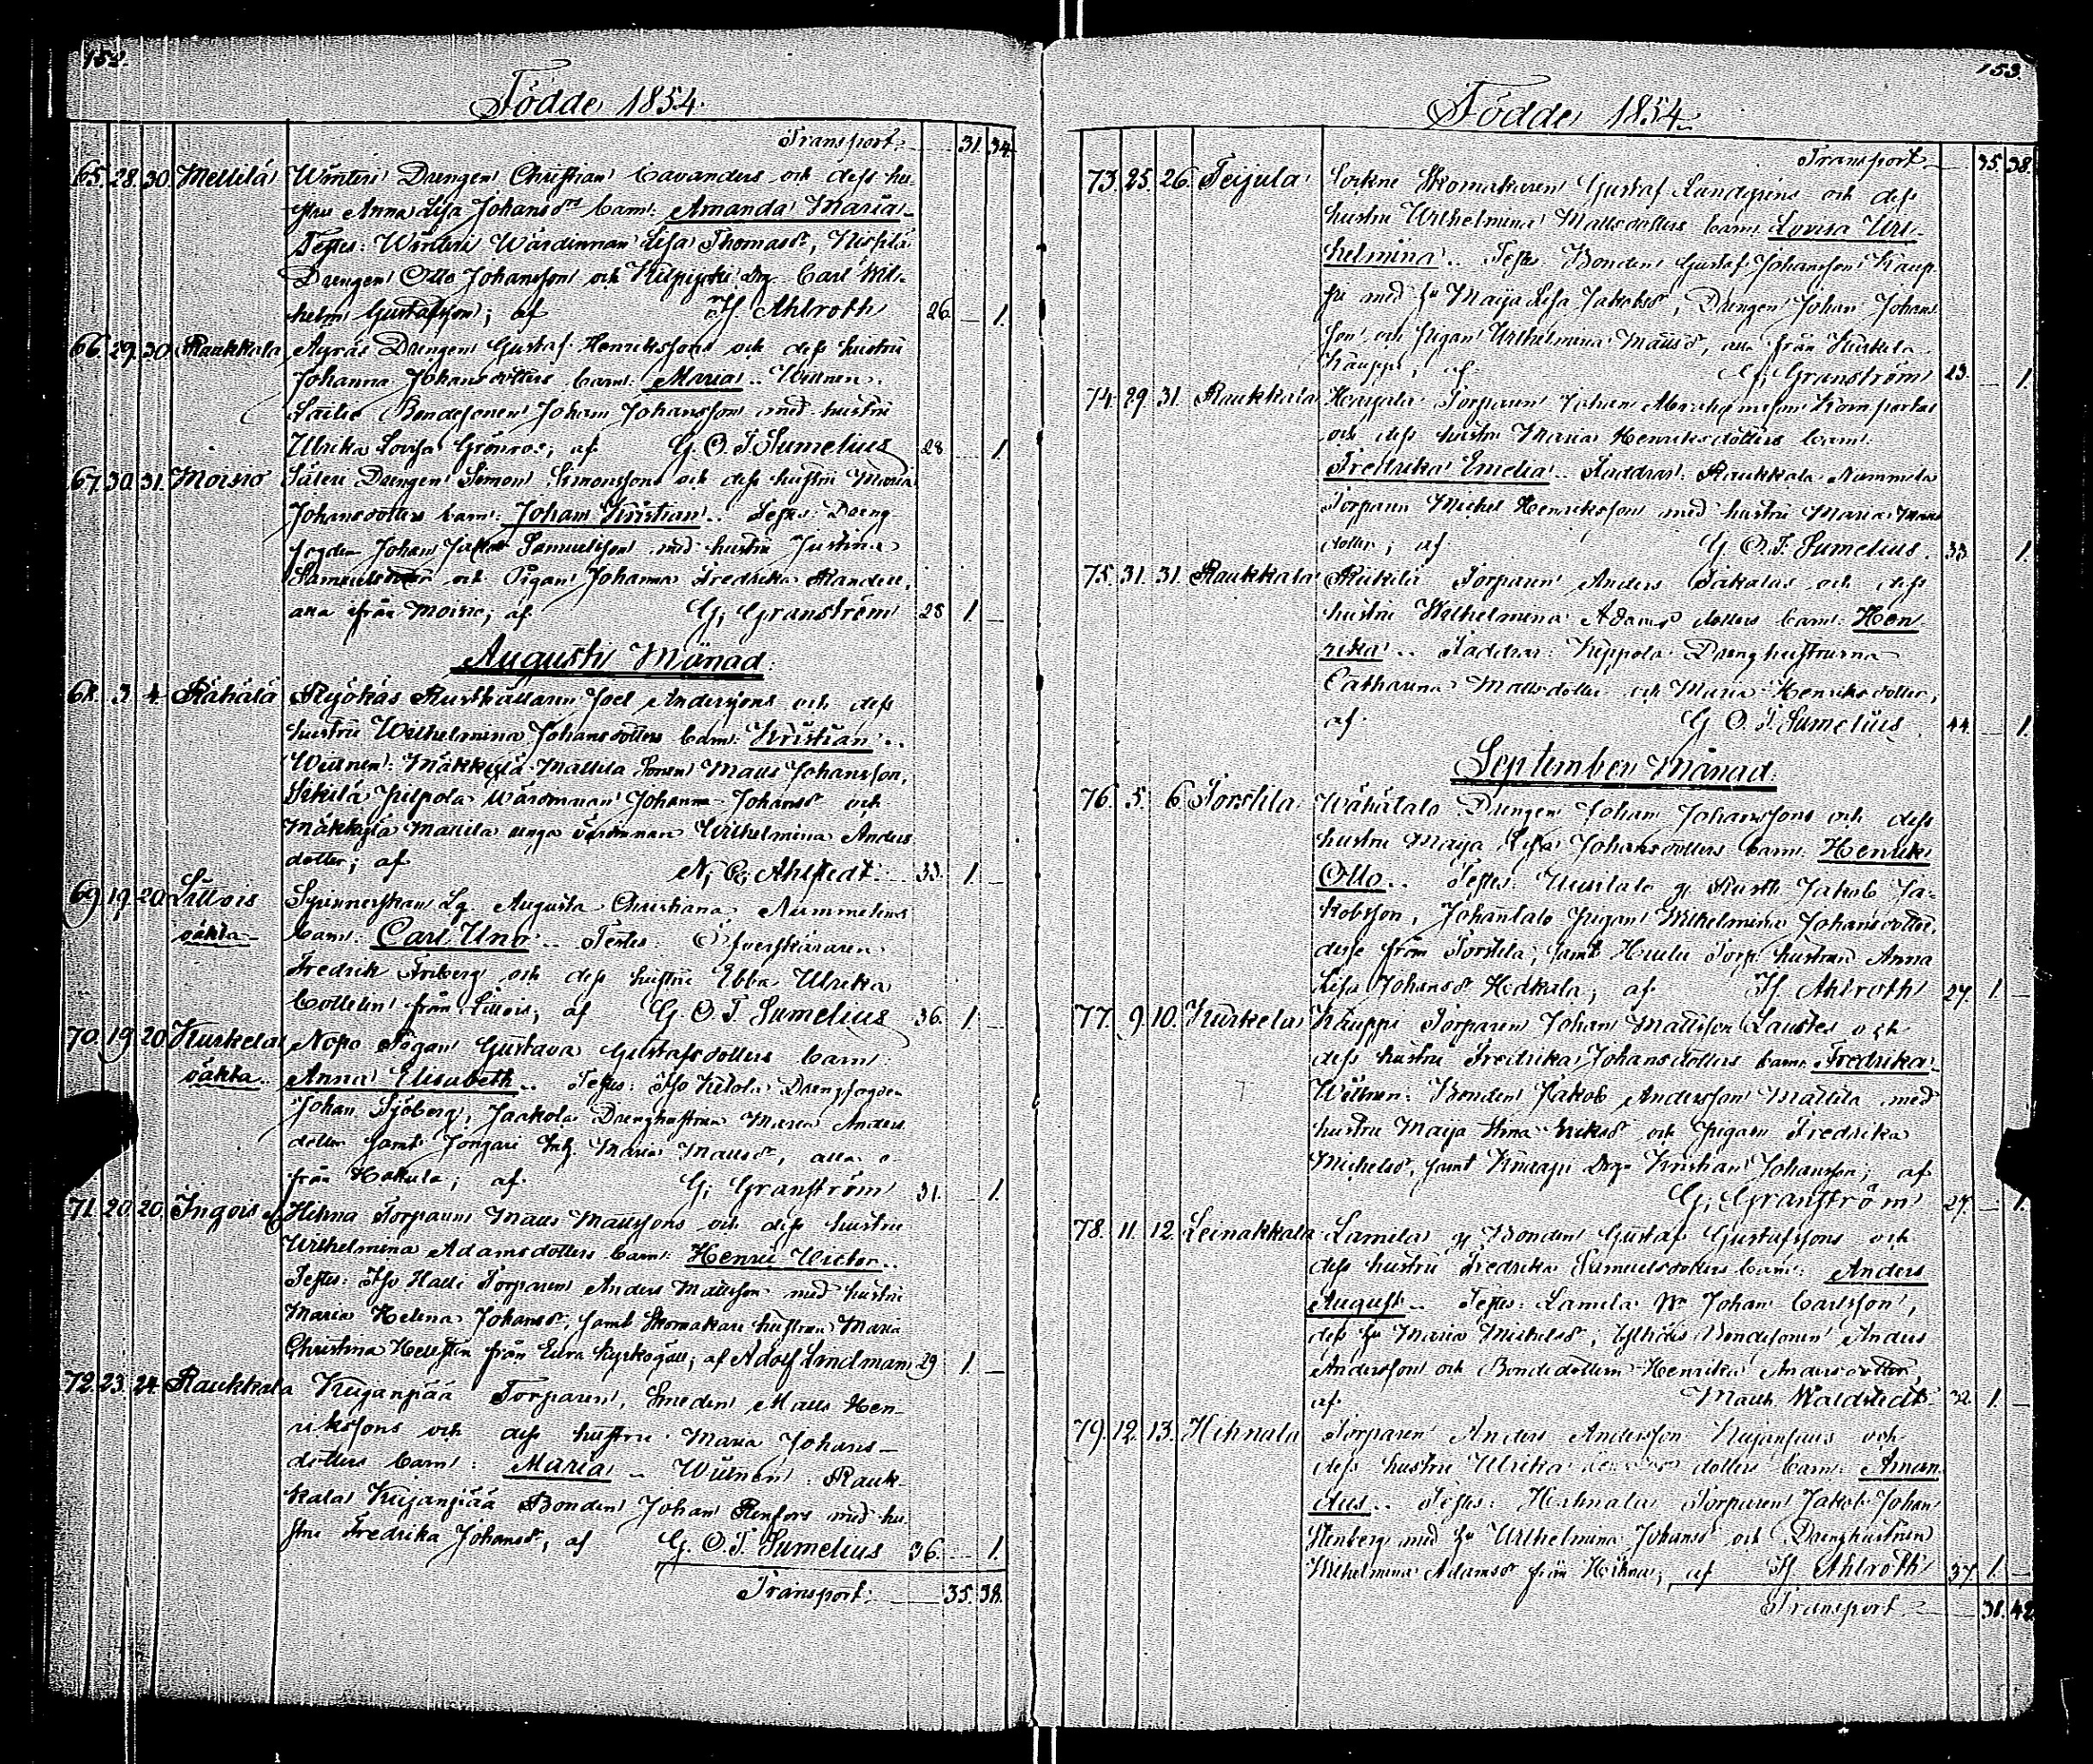 152.
Födde 1854.
Transport 31. 34.
65. 28. 30. Mellilä Wänteri Drengen Christian Cavanders och dess hu-
stru Anna Lisa Johansdrs barn: Amanda Maria
Testes: Wänteri Wärdinnan Lisa Thomasdr,
Drengen Otto Johansson och Dr. Carl Wil-
helm Gustafsson; af Ahlroth 26. 1.
66. 29. 30. Raukkala Äyräs Drengen Gustaf Henrikssons och dess hustru
Johanna Johansdotters barn: Maria. Wittnen:
Bondesonen Johan Johansson med hustru
Ulrika Lovisa Grönros; af G. O. T. Sumelius 28 1.
67. 30. 31. Moisio Säteri Drengen Simon Simonssons och dess hustru Maria
Johansdotters barn: Johan Kristian. Testes: Dreng
fogden Johan Samuelsson med hustru Justina
Samuelsdotter och Pigan Johanna Fredrika Randell,
alla ifrån Moisio; af G. Granström 28 1.
Augusti Månad.
68. 3. 4. Rähälä Rusthållaren Joel Anderssons och dess
hustru Wilhelmina Johansdotters barn: Kristian.
Wittnen: Mäkkylä Mattila Sonen Matts Johansson,
Pilpola Wärdinnan Johanna Johansdr och
Mäkkylä Mattila unga värdinnan Wilhelmina Anders
dotter; af Ahlstedt 33. 1.
69. 19. 20. Littois Spinnerskan Lg. Augusta Christiana Nummelins
oäkta barn: Carl Uno. Testes: Öfverskäraren
Fredrik Friberg och dess hustru Ebba Ulrika
från Littois; af G. O. T. Sumelius 36. 1.
70. 19. 20. Kurkela Nopo Pigan Gustava Gustafsdotters barn
oäkta. Anna Elisabeth. Testes: Drengfogden
Johan Sjöberg, Jaakola Drenghustrun Maria Anders
dotter samt Maria Mattsdr, alla
från Hakula; af G. Granström 31. 1.
71. 20. 20. Ingois Hihna Torparen Matts Mattssons och dess hustru
Wilhelmina Adamsdotters barn: Henric Victor.
Testes: Torparen Anders Mattsson med hustru
Maria Helena Johansdr, samt Skomakare hustrun Maria
Christina Hellsten från Eura Kyrkogård; af Adolf Lindman 29 1.
72. 23. 24. Raukkala Kujanpää Torparen, Smeden Matts Hen-
rikssons och dess hustru Maria Johans-
dotters barn: Maria. Wittnen: Rauk-
kala Kujanpää Bonden Johan Renfors med hu-
stru Fredrika Johansdr, af G. O. T. Sumelius 36. 1.
Transport 35. 38.
153.
Födde 1854.
Transport 35. 38.
73. 25. 26. Teijula Sockne Skomakaren Gustaf Lundgrens och dess
hustru Wilhelmina Mattsdotters barn: Lovisa Wil-
helmina. Testes Bonden Gustaf Johansson Kaup-
pi med hu Maija Lisa Jakobsdr, Drengen Johan Johans
son och Pigan Wilhelmina Mattsdr, alla från Kurkela
Kauppi, af G. Granström 23. 1.
74. 29. 31. Raukkala Torparen Johan Abrahamsson
och dess hustru Maria Henriksdotters barn:
Fredrika Emelia. Faddrar: Raukkala Nummela
Torparen Michel Henriksson med hustru Maria Matts
dotter; af G. O. T. Sumelius. 33. 1.
75. 31. 31. Raukkala Torparen Anders och dess
hustru Wilhelmina Adams dotters barn: Hen
rika. Faddrar: Drenghustrurna
Catharina Mattsdotter och Maria Henriksdotter,
af G. O. T. Sumelius 44. 1.
September Månad.
76. 5. 6. Torstila Wähätalo Drengen Johan Johanssons och dess
hustru Maija Lisa Johansdotters barn: Henrik
Otto. Testes: Uusitalo Rusth. Jakob Ja-
kobsson, Johantalo Pigan Wilhelmina Johansdotter,
desse från Torstila; samt Torp. hustrun Anna
Lisa Johansdr; af Ahlroth 27. 1.
77. 9. 10. Kurkela Kauppi Torparen Johan Mattsson och
dess hustru Fredrika Johansdotters barn Fredrika
Wittnen: Bonden Jakob Andersson Mattila med
hustru Maija Stina Eriksdr och Pigan Fredrika
Michelsdr, samt Knaapi Drg. Kristian Johansson; af
G. Granström 27. 1.
78. 11. 12. Leinakkala Lamila Bonden Gustaf Gustafssons och
dess hustru Fredrika Samuelsdotters barn: Anders
August. Testes: Lamila Johan Carlsson,
dess hu Maria Michelsdr, Bondesonen Anders
Andersson och Bondedottern Henrika Andersdotter,
af Waldstedt 32. 1.
79. 12. 13. Hihnala Torparen Anders Andersson och
dess hustru Ulrika dotters barn: Aman
dus. Testes: Hihnala Torparen Jakob Johan
Stenberg med hu Wilhelmina Johansdr och Drenghustrun
Wilhelmina Adamsdr från Hihna; af Ahlroth 37. 1.
Transport 38. 42.